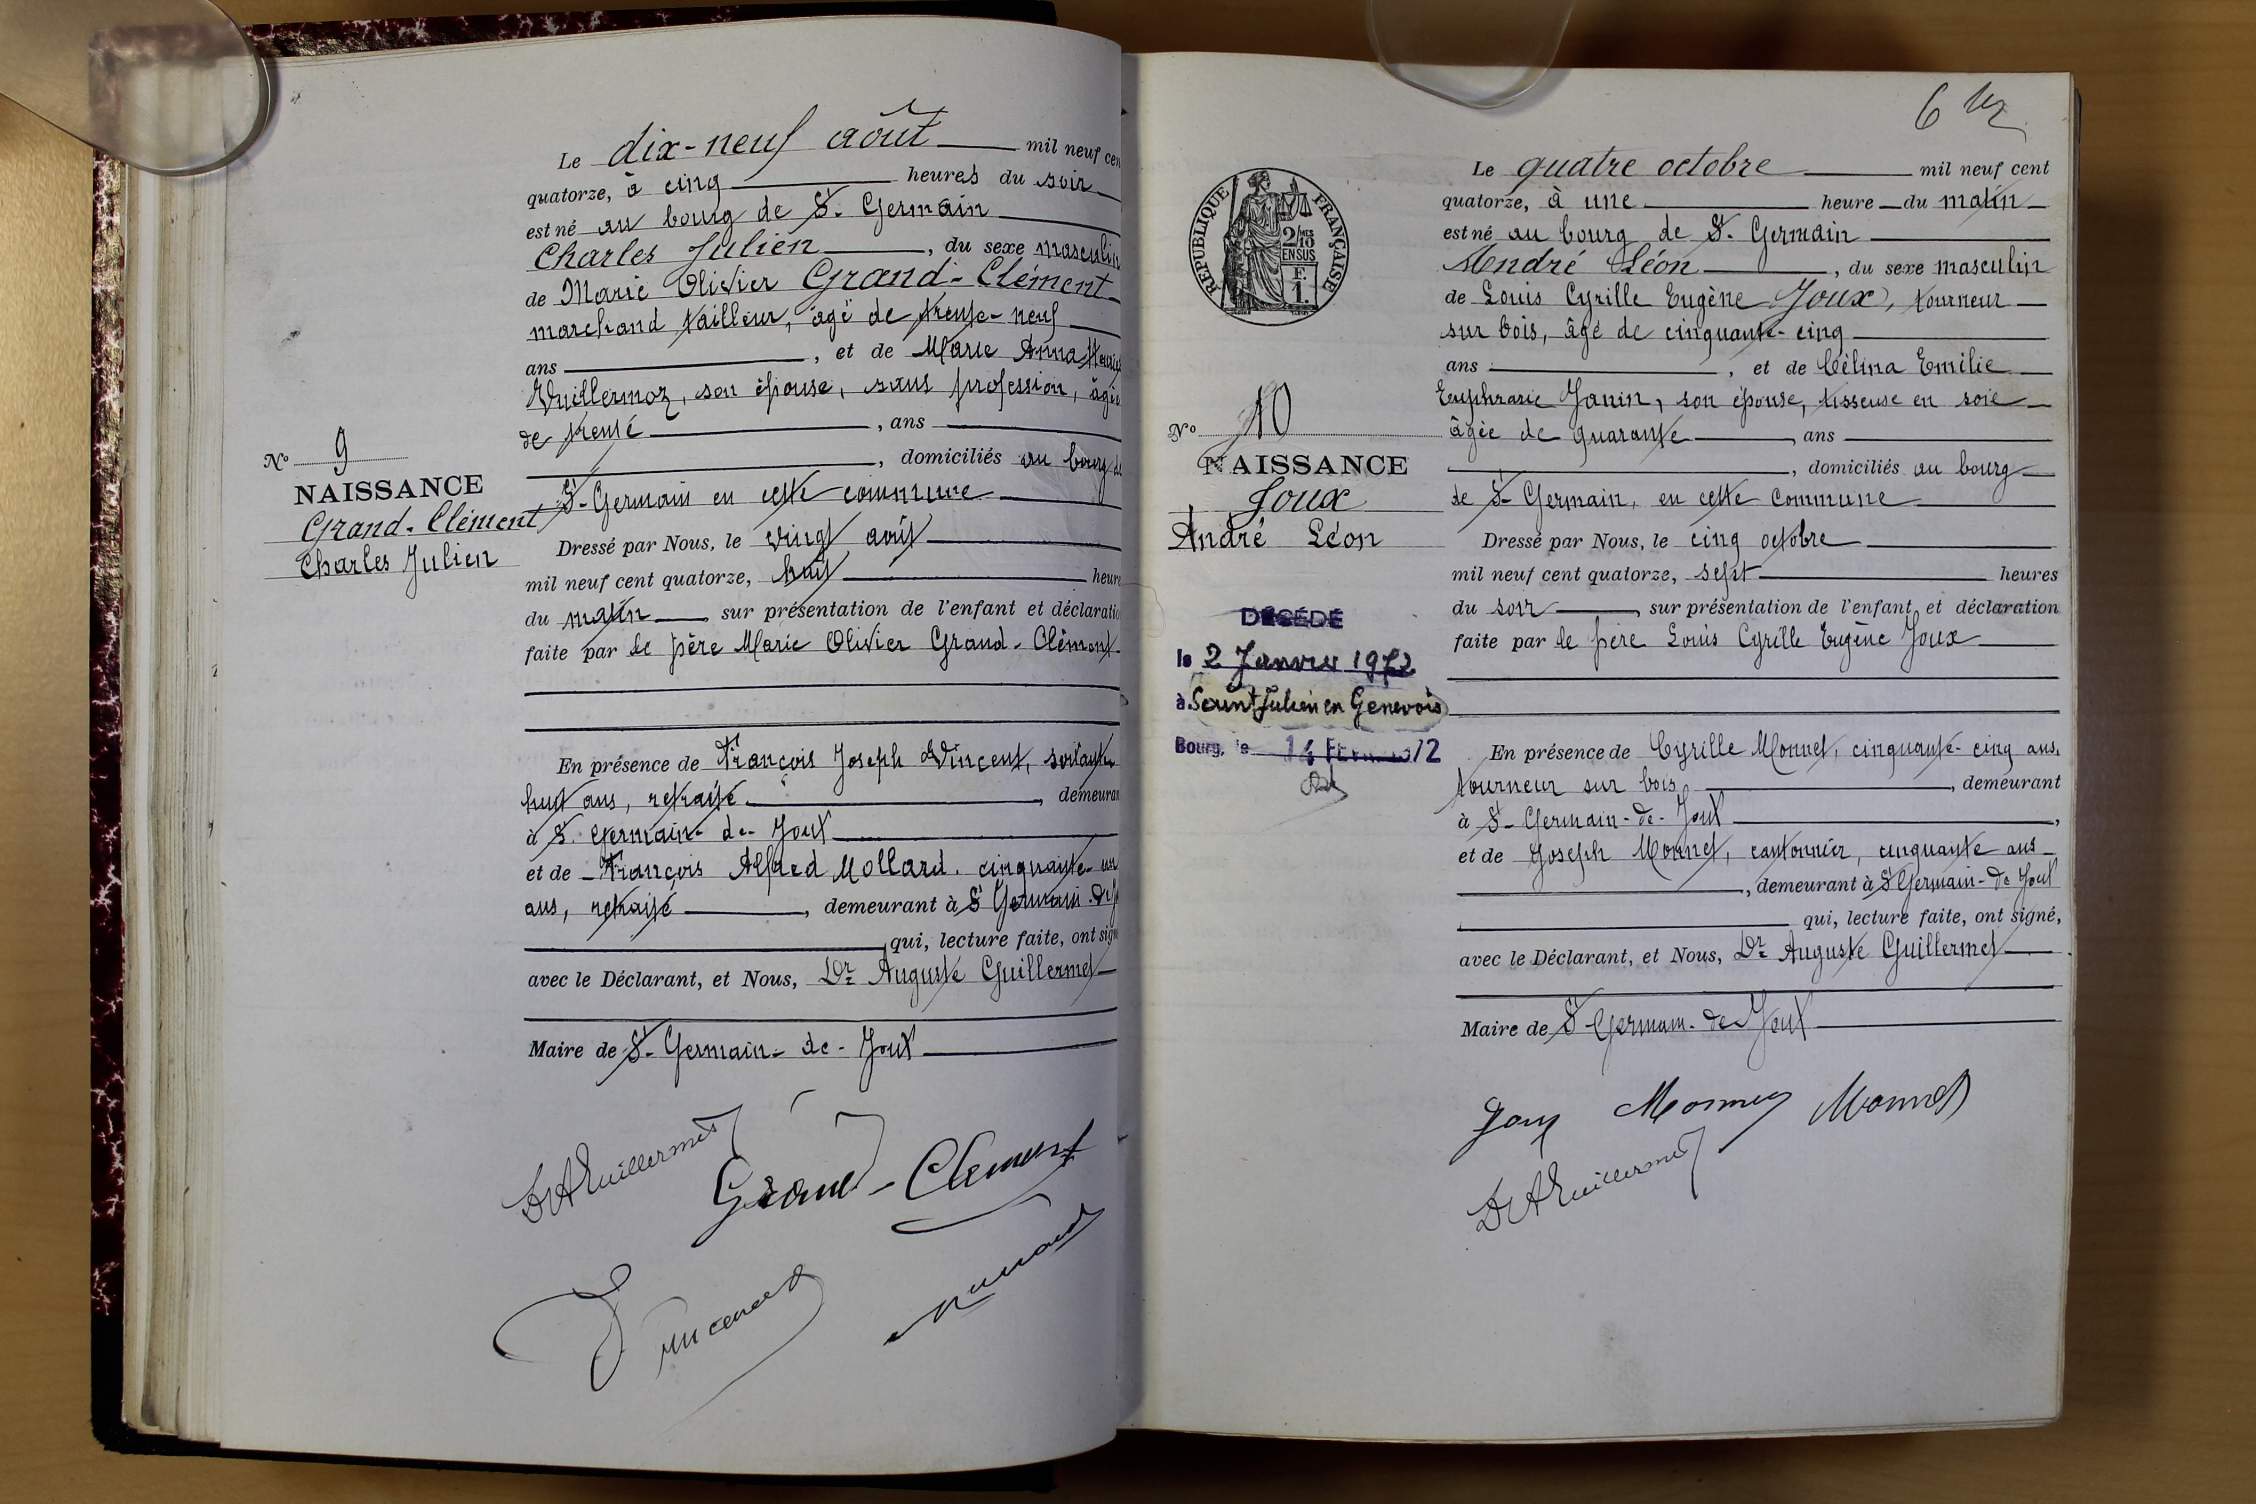 Le dix-neuf août mil neuf cen
quatorze, à cinq heures du soir
est né au bourg de St-Germain
Charles Julien, du sexe masculin
de Marie Olivier Grand-Clément
marchand tailleur, âgé de trente-neuf
ans, et de Marie Anna
Vuillermoz, son épouse, sans profession, âgée
de trente, ans
, domiciliés au bourg de
St-Germain en cette commune
Dressé par Nous, le vingt août
mil neuf cent quatorze, huit heure
du matin, sur présentation de l'enfant et déclaratio
faite par le père Marie Olivier Grand-Clément
En présence de François Joseph Vincent, soixante
huit ans, retraité, demeuran
à St-Germain-de-Joux
et de François Alfred Mollard, cinquante-un
ans, retraité, demeurant à St Germain-de-J
qui, lecture faite, ont sign
avec le Déclarant, et Nous, Dr Auguste Guillermet
Maire de St-Germain-de-Joux
No 9
NAISSANCE
Grand-Clément
Charles Julien
DrAGuillermet
Grand-Clément
Vincent
6
RÉPUBLIQUE FRANÇAISE
2/10 MES
EN SUS
F.
1.
No 10
NAISSANCE
Joux
André Léon
DÉCÉDÉ
le 2 Janvier 1972
à Saint Julien en Genevois
Bourg, le 14 FEVR. 1972
Le quatre octobre mil neuf cent
quatorze, à une heure du matin
est né au bourg de St-Germain
André Léon, du sexe masculin
de Louis Cyrille Eugène Joux, tourneur
sur bois, âgé de cinquante-cinq
ans, et de Célina Emilie
Euphrasie Janin, son épouse, tisseuse en soie
âgée de quarante, ans
, domiciliés au bourg
de St-Germain, en cette commune
Dressé par Nous, le cinq octobre
mil neuf cent quatorze, sept heures
du soir, sur présentation de l'enfant et déclaration
faite par le père Louis Cyrille Eugène Joux
En présence de Cyrille Monnet, cinquante-cinq ans,
tourneur sur bois, demeurant
à St-Germain-de-Joux,
et de Joseph Monnet, cantonnier, cinquante ans
, demeurant à St Germain-de Joux
qui, lecture faite, ont signé,
avec le Déclarant, et Nous, Dr Auguste Guillermet
Maire de St-Germain-de-Joux
Joux Monnet Monnet
DrAGuillermet